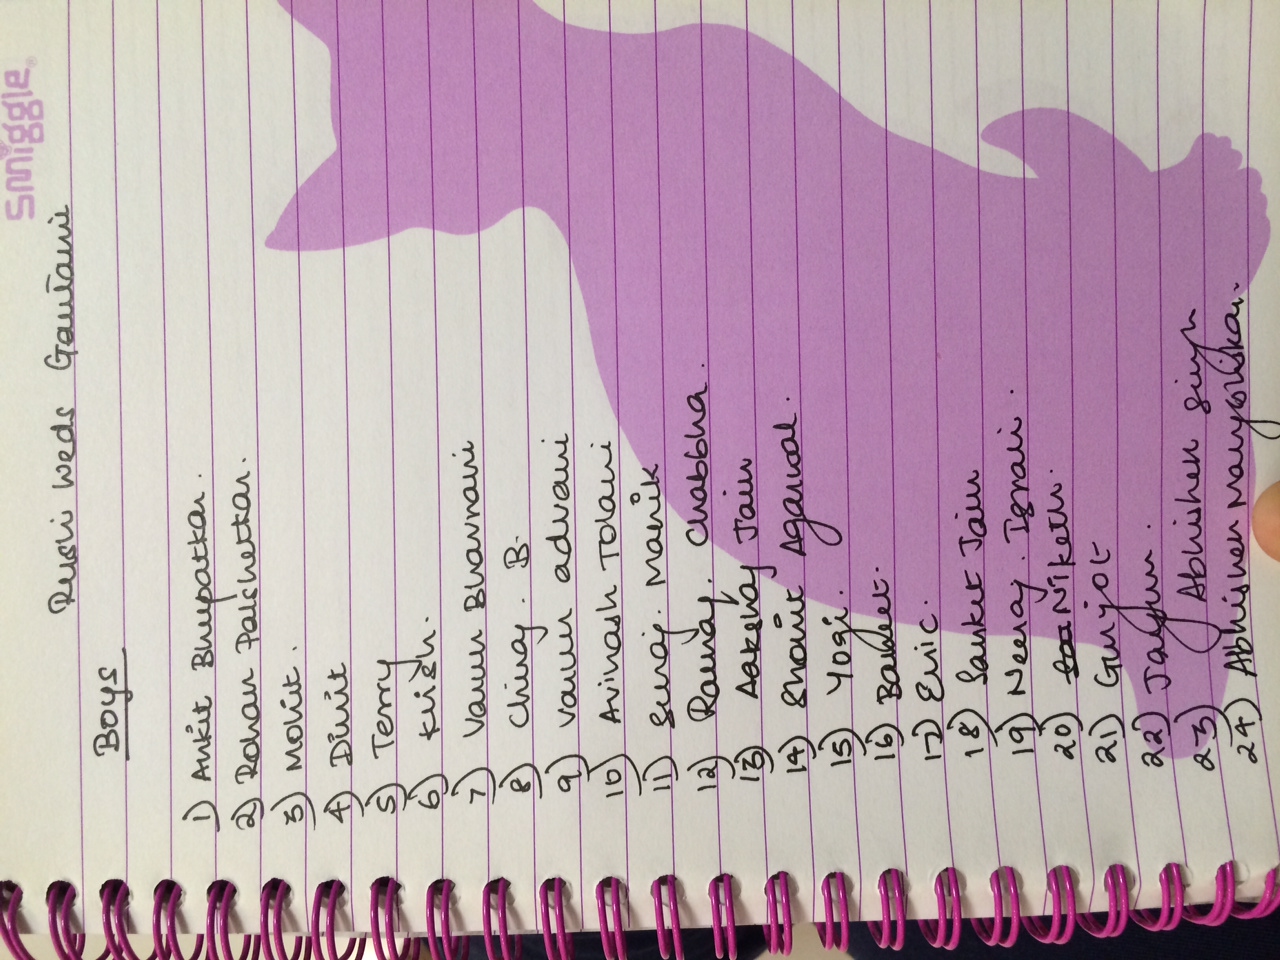 smiggle
Rushi weds Gautami
Boys
1) Ankit Bhupatkar.
2) Rohan Palshetkar.
3) Mohit.
4) Dinit
5) Terry
6) Krish.
7) Varun Bhavnani
8) Chirag. B.
9) Varun advani
10) Avinash Tolani
11) Suraj. Manik
12) Ramaj. Chabbha.
13) Aakshaj Jain
14) Shonit Agarwal.
15) Yogi.
16)
17) Eric.
18) Sanket Jain
19) Neeraj. Israni.
20) Niketh.
21) Gurjot
22)
23) Abhishek Singh
24) Abhishek